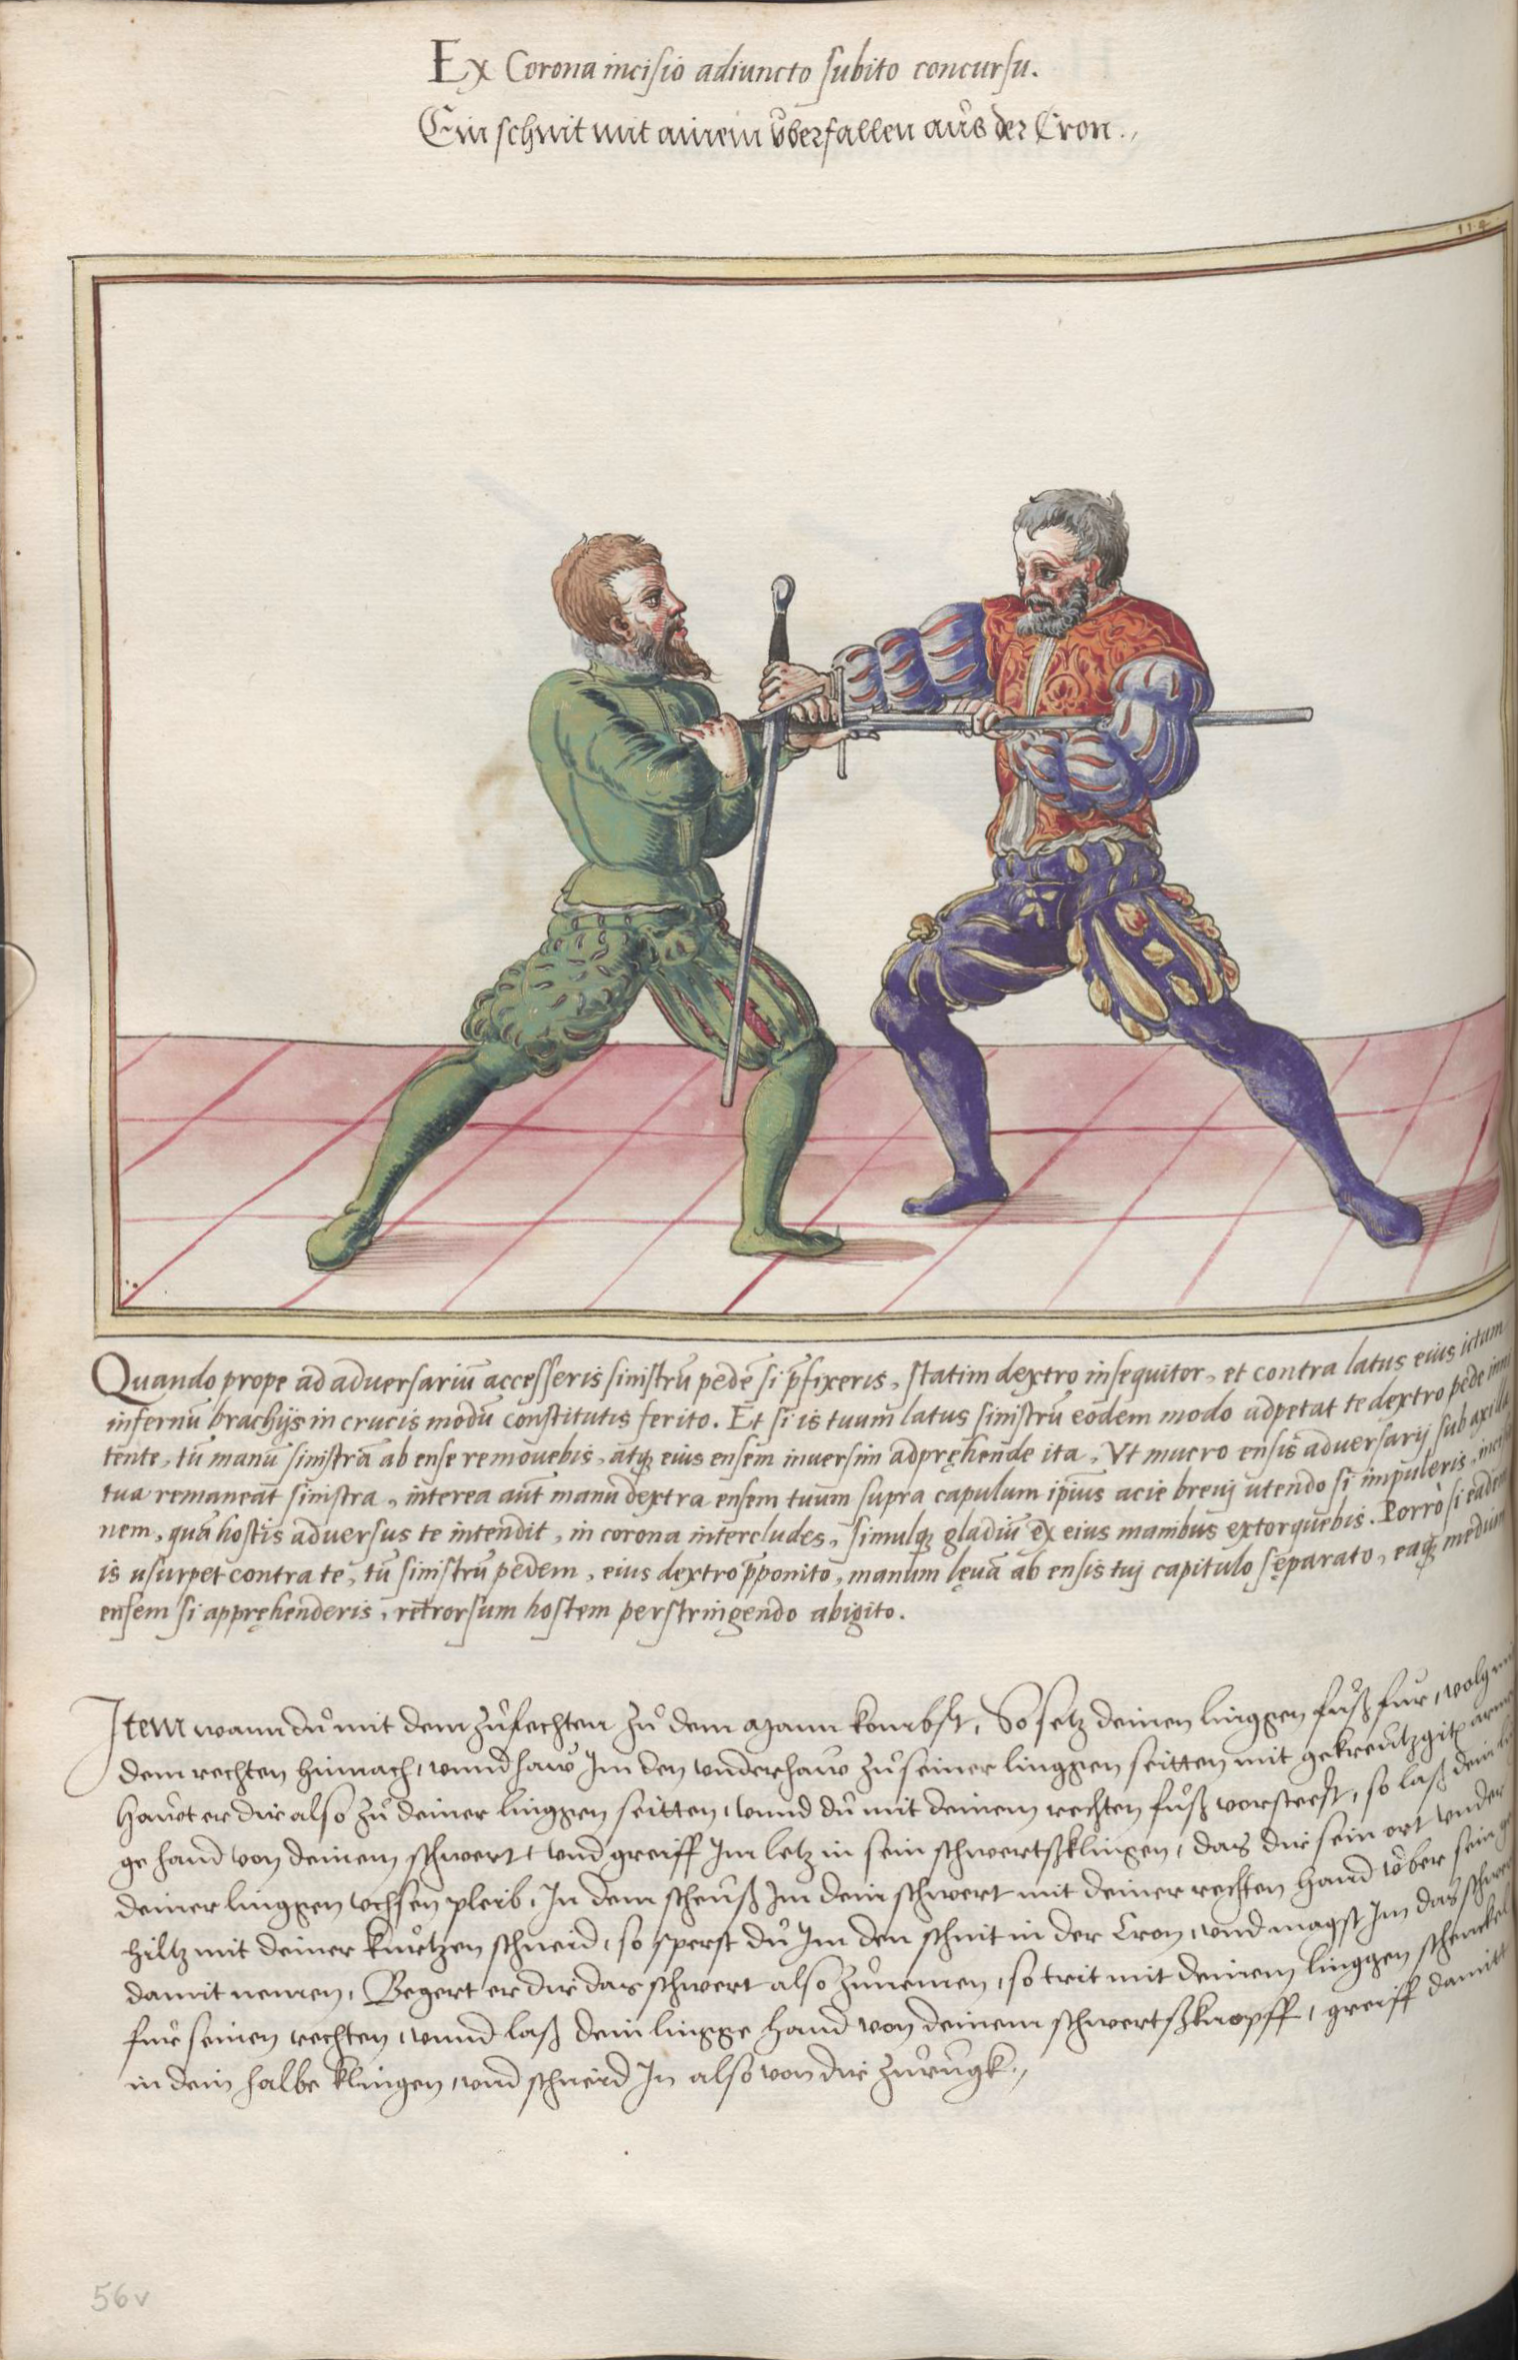 Ex Corona incisio adiuncto subito concursu.
Ein schnit mit ainem uberfallen aus der Cron.
112
Quando prope ad adversariū accesseris sinistrū pedē si p̄fixeris, statim dextro insequitor, et contra latus eius ictum
infernū brachijs in crucis modū constitutis ferito. Et si is tuum latus sinistrū eodem modo adpetat te dextro pede
tente, tū manū sinistrā ab ense removebis, atq; eius ensem inversim adpręhende ita, Vt mucro ensis adversarij sub axilla
tua remaneāt sinistra, interea aūt manū dextra ensem tuum supra capulum ip̄ius acie brevj utendo si impuleris,
nem, quā hostis adversus te intendit, in corona intercludes, simulq; gladiū ex eius manibus extorquebis. Porrò si eadem
is usurpet contra te, tū sinistrū pedem, eius dextro p̄ponito, manum lęva ab ensis tuj capitulo sęparato, eaq; medium
ensem si appręhenderis, retrorsum hostem perstringendo abigito.
Item wann du mit dem zufechten zu dem Mann kombst, So setz deinen linggen fuß fur, volg
dem rechten hinnach, unnd haw Im den underhaw zu seiner linggen seitten mit gekreutzgitn
hawt er dir also zu deiner linggen seitten, unnd du mit deinem rechten fuß vorsteest, so laß dein
ge hand von deinem schwert und greiff Im letz in sein schwertsklingen, das dir sein ort under
deiner linggen uchsen pleib, In dem scheuß Im dein schwert mit deiner rechten hand uber sein
hiltz mit deiner kurtzen schneid, so sperst du Im den schnit in der Cron, und magst Im das
damit nemen, Begert er dir das schwert also zunemen, so trit mit deinem linggen schenckel
fur seinen rechten, unnd laß dein lingge hand von deinem schwertsknopff, greiff damit
in dein halbe klingen, und schneid In also von dir zurugk.
56v